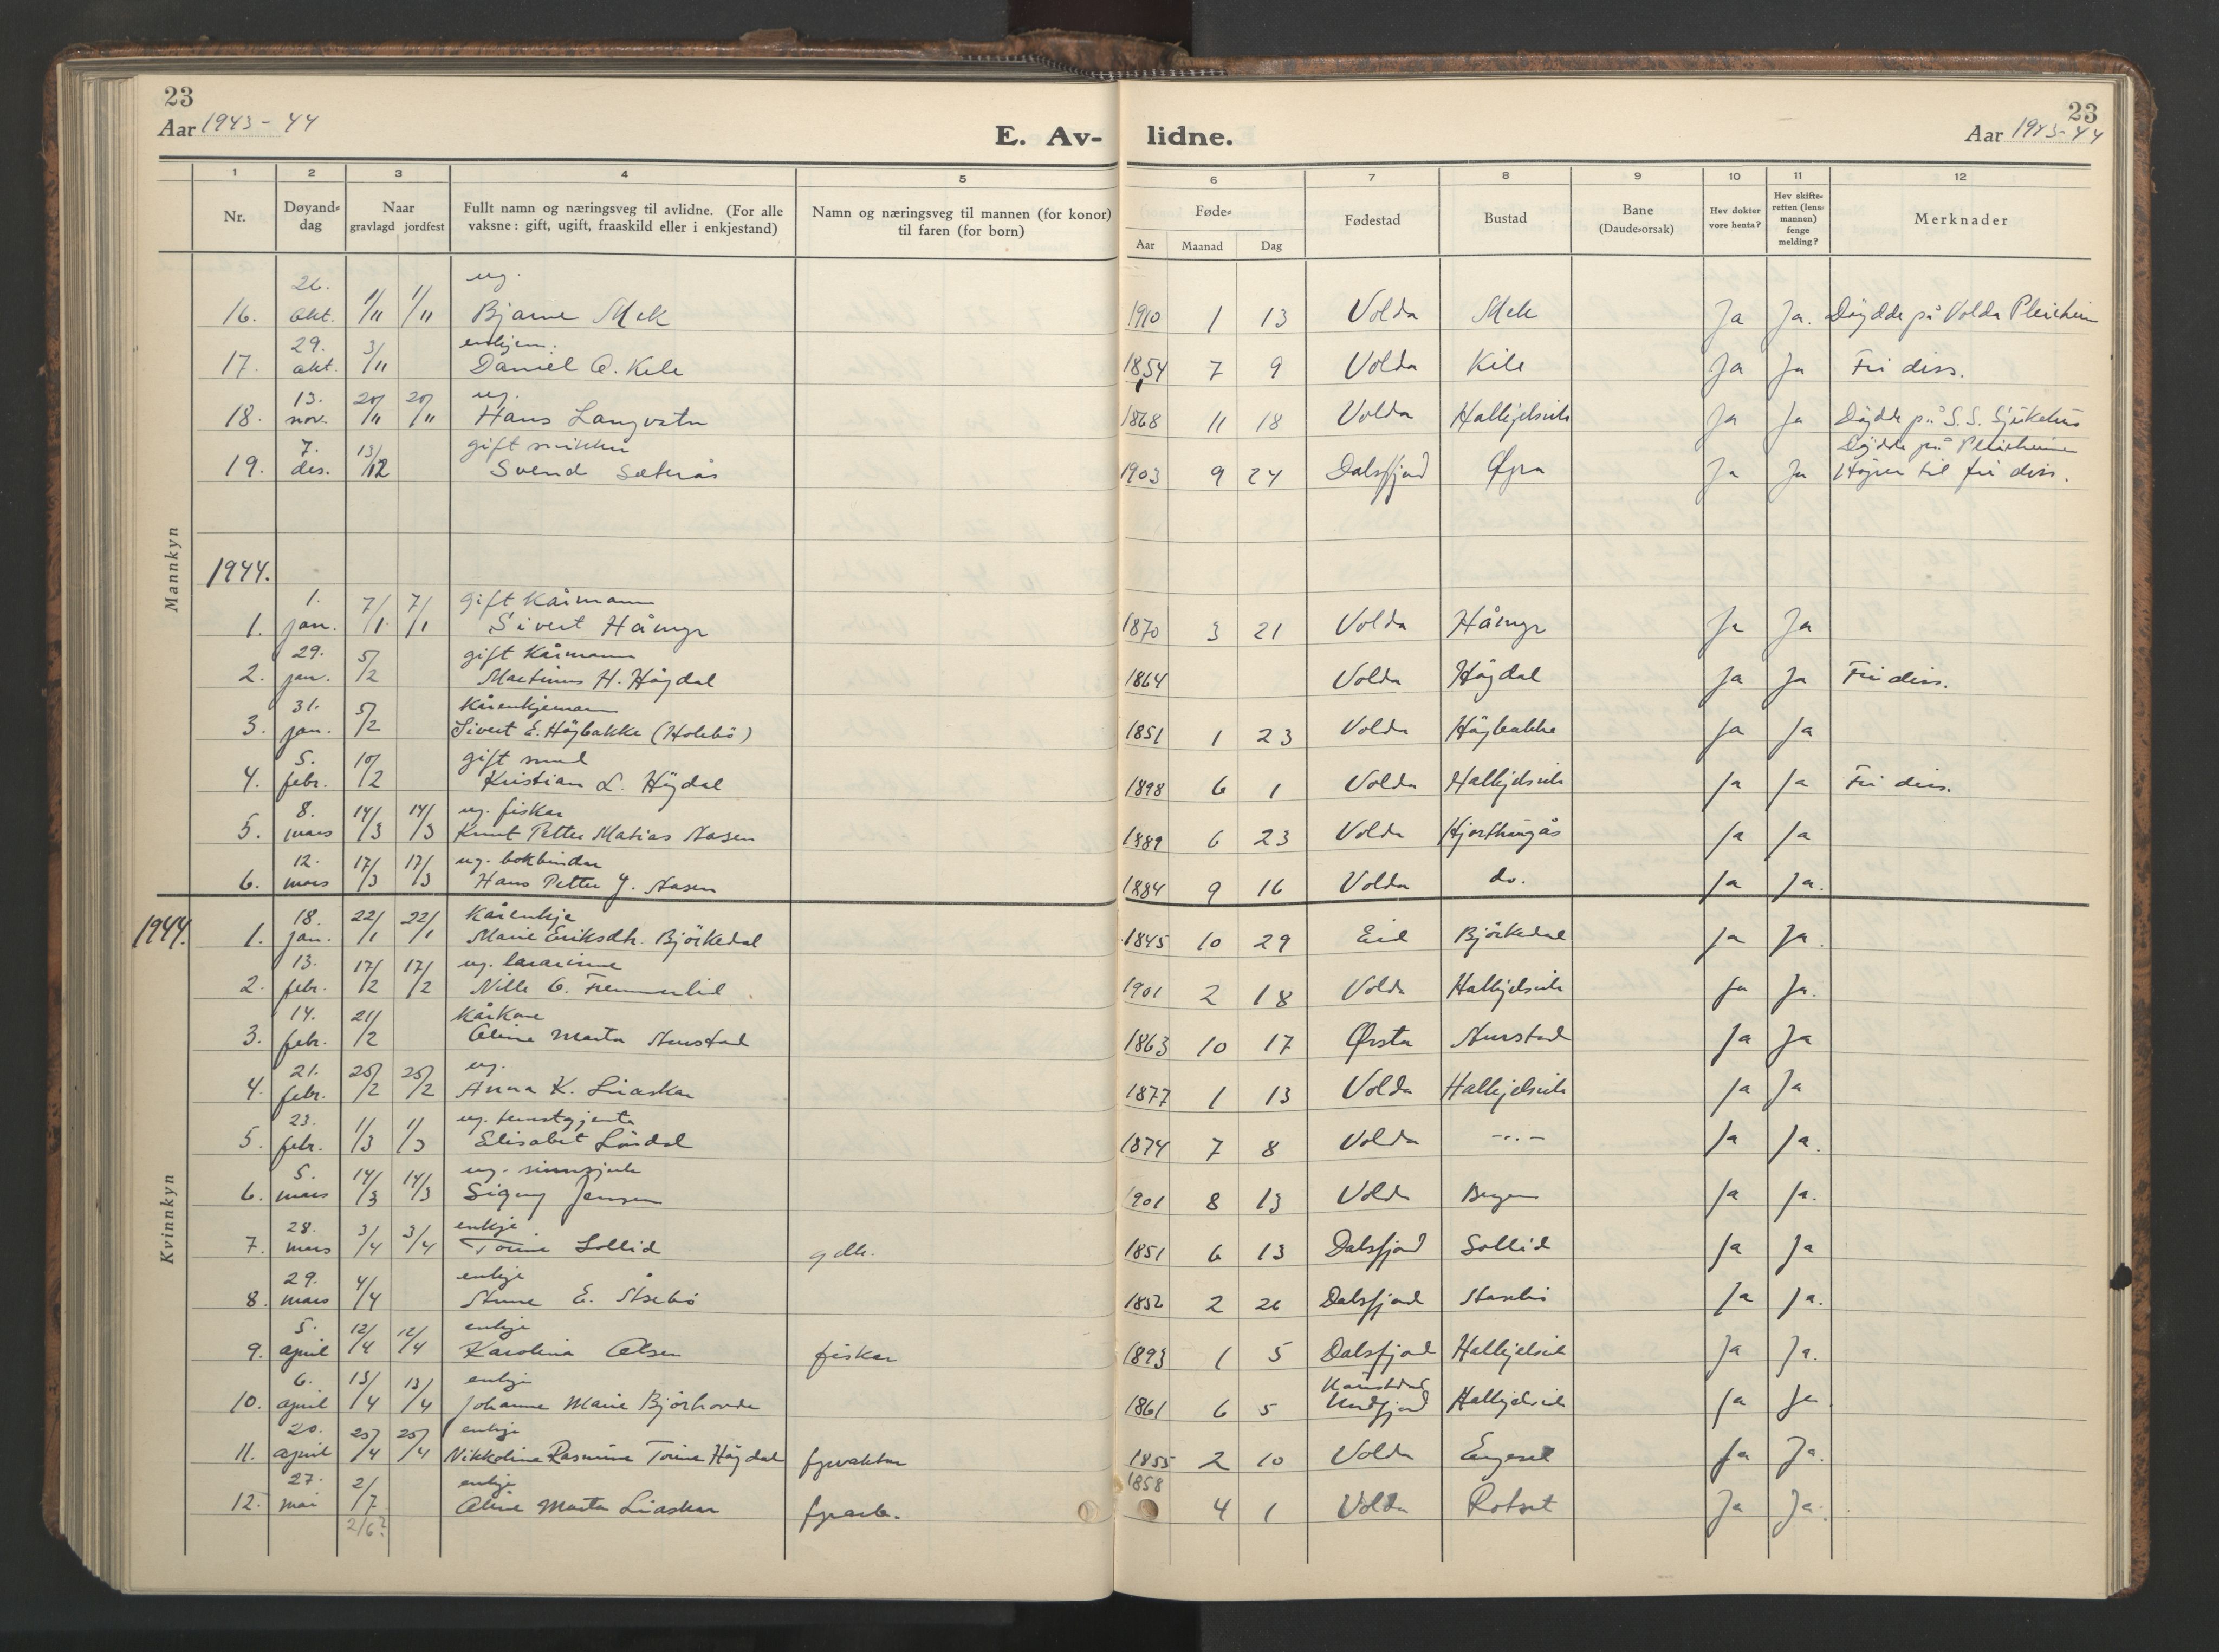 23
Aar 1943-44
E. Av-
lidne.
23
Aar 1943-44
1 2 3 4 5 6 7 8 9 10 11 12
Nr.
Døyand=dag
Naar
gravlagd jordfest
Fullt namn og næringsveg til avlidne. (For alle vaksne: gift, ugift, fraaskild eller i enkjestand)
Namn og næringsveg til mannen (for konor)
til faren (for born)
Føde=
Aar Maanad Dag
Fødestad
Bustad
Bane
(Daude=orsak)
Hev dokter vore henta?
Hev skifte=retten (lens=mannen) fenge melding?
Merknader
Mannkyn
16. 26. okt. 1/11 1/11 ug. Bjarne Mek 1910 1 13 Volda Mek Ja Ja. Døydde på Volda Pleieheim
17. 29. okt. 3/11 enkjem. Daniel A. Kile 1854 7 9 Volda Kile Ja Ja Fri diss.
18. 13. nov. 20/11 20/11 ug. Hans Langvatn 1868 11 18 Volda Halkjelsvik Ja Ja Døydde på S.S. Sjukehus
19. 7. des. 13/12 gift snikkar Svend Sæterås 1903 9 24 Dalsfjord Øyra Ja Ja Døydde på Pleieheimen Høyrer til fri diss.
1944.
1. 1. jan. 7/1 7/1 gift Kårmann Sivert Håmyr 1870 3 21 Volda Håmyr Ja Ja
2. 29. jan. 5/2 gift Kårmann Martinus H. Högdal 1864 Volda Högdal Ja Ja Fri diss.
3. 31. jan. 5/2 Kårenkjemann Sivert E. Högbakke (Holebö) 1851 1 23 Volda Högbakke Ja Ja
4. 5. febr. 10/2 gift smed Kristian L. Högdal 1898 6 1 Volda Halkjelsvik Ja Ja Fri diss.
5. 8. mars 14/3 14/3 ug. fiskar Knut Petter Matias Aasen 1889 6 23 Volda Hjorthaugås Ja Ja
6. 12. mars 17/3 17/3 ug. bokbindar Hans Petter J. Aasen 1884 9 16 Volda do. Ja Ja.
Kvinnkyn
1944.
1. 18. jan. 22/1 22/1 Kårenkje Marie Eriksdt. Björkedal 1845 10 29 Eid Björkedal Ja Ja.
2. 13. febr. 17/2 17/2 ug. lærarinne Nille O. Fremmerlid 1901 2 18 Volda Halkjelsvik Ja Ja.
3. 14. febr. 21/2 Kårkone Oline Marta Aurstad 1863 10 17 Ørsta Aurstad Ja Ja
4. 21. febr. 25/2 25/2 ug. Anna K. Liaskar 1877 1 13 Volda Halkjelsvik Ja Ja
5. 23. febr. 1/3 1/3 ug. tenestgjente Elisabet Löndal 1874 7 8 Volda -..- Ja Ja.
6. 5. mars 14/3 14/3 ug. Signy Jensen 1901 8 13 Volda Bergen Ja Ja.
7. 28. mars 3/4 3/4 enkje Torine Sollid gdb. 1851 6 13 Dalsfjord Sollid Ja Ja
8. 29. mars 4/4 enkje Anne E. Åsebö 1852 2 26 Dalsfjord Aasebö Ja Ja.
9. 5. april 12/4 12/4 enkje Karolina Olsen fiskar 1893 1 5 Dalsfjord Halkjelsvik Ja Ja.
10. 6. april 13/4 13/4 enkje Johanne Marie Björhovde 1861 6 5 Halkjelsvik Ja Ja
11. 20. april 25/4 25/4 enkje Nikkoline Rasmine Torine Högdal fyrvaktar 1855 2 10 Volda Engeset Ja Ja.
12. 27. mai 2/7 2/6? enkje Oline Marta Liaskar fyrarb. 1858 4 1 Volda Rotset Ja Ja.